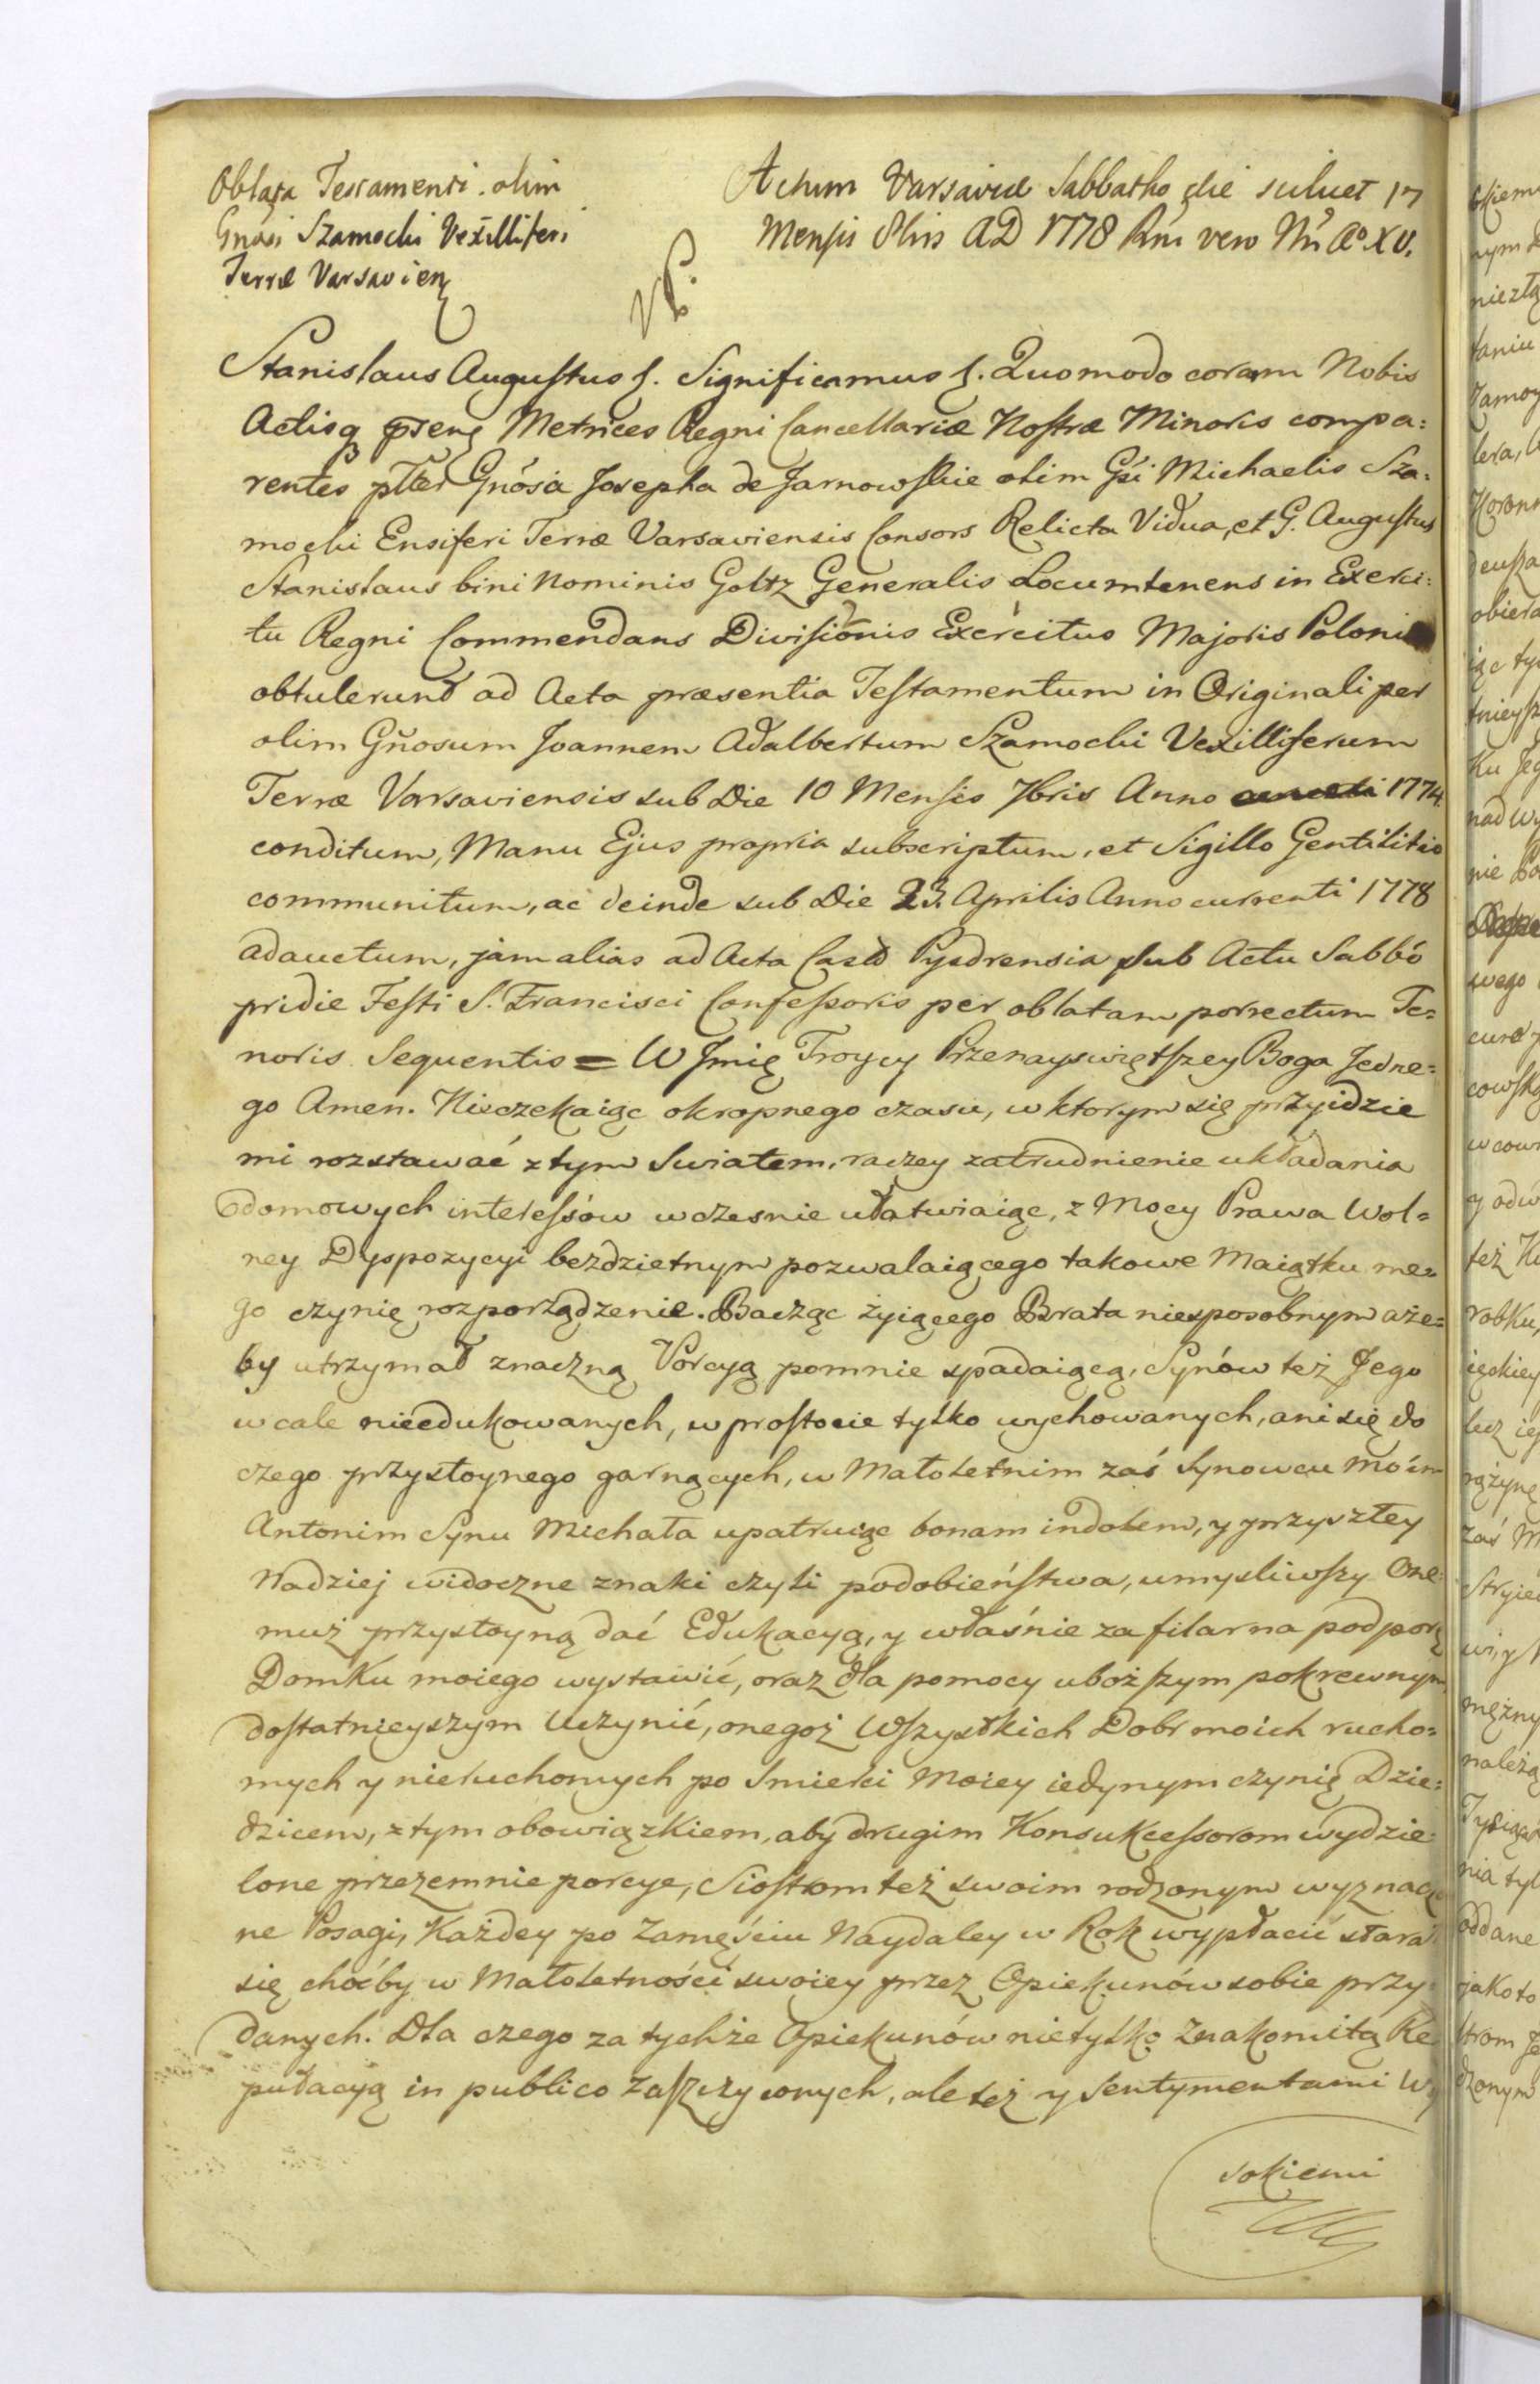 Oblata Testamenti olim
Gnosi Szamocki Vexilliferi
Terræ Varsavien
Actum Varsaviæ Sabbatho die scilicet 17
Mensis 8bris AD 1778 Rni vero Nri Ao XV.
Stanislaus Augustus f. Significamus f. Quomodo coram Nobis
Actisq prens Metrices Regni Cancellariæ Nostræ Minoris compa:
rentes plter Gnósa Josepha de Jarnowskie olim Gsi Michaelis Sza:
mocki Ensiferi Terræ Varsaviensis Consors Relicta Vidua, et G. Augustus
Stanislaus bini Nominis Goltz Generalis Locumtenens in Exerci:
tu Regni Commendans Divisionis Exercitus Majoris Poloniæ
obtulerunt ad Acta præsentia Testamentum in Originali per
olim Gnosum Joannem Adalbertum Szamocki Vexilliferum
Terræ Varsaviensis sub Die 10 Mensis 7bris Anno 1774
conditum, Manu Ejus propria subscriptum, et Sigillo Gentilitio
communitum, ac deinde sub Die 23. Aprilis Anno currenti 1778
adauctum, jam alias ad Acta Castr Pysdrensia sub Actu Sabbó
pridie Festi S. Francisci Confessoris per oblatam porrectum Te=
noris Sequentis = W Jmię Troycy Przenayswiętszey Boga Jedne=
go Amen. Nieczekaiąc okropnego czasu, w ktorym się przyidzie
mi rozstawać z tym Swiatem, raczey zatrudnienie układania
domowych interessów wczesnie ułatwiaiąc, z Mocy Prawa Wol=
ney Dyspozycyi bezdzietnym pozwalaiącego takowe Maiątku me=
go czynię rozporządzenie. Bacząc żyiącego Brata niesposobnym aże=
by utrzymał znaczną Porcyą pomnie spadaiącą, Synów też Jego
wcale nieedukowanych, w prostocie tylko wychowanych, ani się do
czego przystoynego garnących, w Małoletnim zaś Synowcu moim
Antonim Synu Michała upatruiąc bonam indolem, y przyszłey
Nadziej widoczne znaki czyli podobieństwa, umysliwszy One=
muż przystoyną dać Edukacyą, y właśnie za filar na podporę
Domku moiego wystawić, oraz dla pomocy uboższym pokrewnym
dostatnieyszym Uczynić, onegoż Wszystkich Dobr moich rucho=
mych y nieruchomych po Smierci Moiey iedynym czynię Dzie=
dzicem, z tym obowiązkiem, aby drugim Konsukcessorom wydzie=
lone przezemnie porcye, Siostrom też swoim rodzonym wyznaczo
ne Posagi, Każdey po Zamęściu Naydaley w Rok wypłacić starał
się choćby w Małoletności swoiey przez Opiekunów sobie przy=
danych. Dla czego za tychże Opiekunów nietylko Znakomitą Re
putacyą in publico Zaszczyconych, ale też y Sentymentami Wy
sokiemi